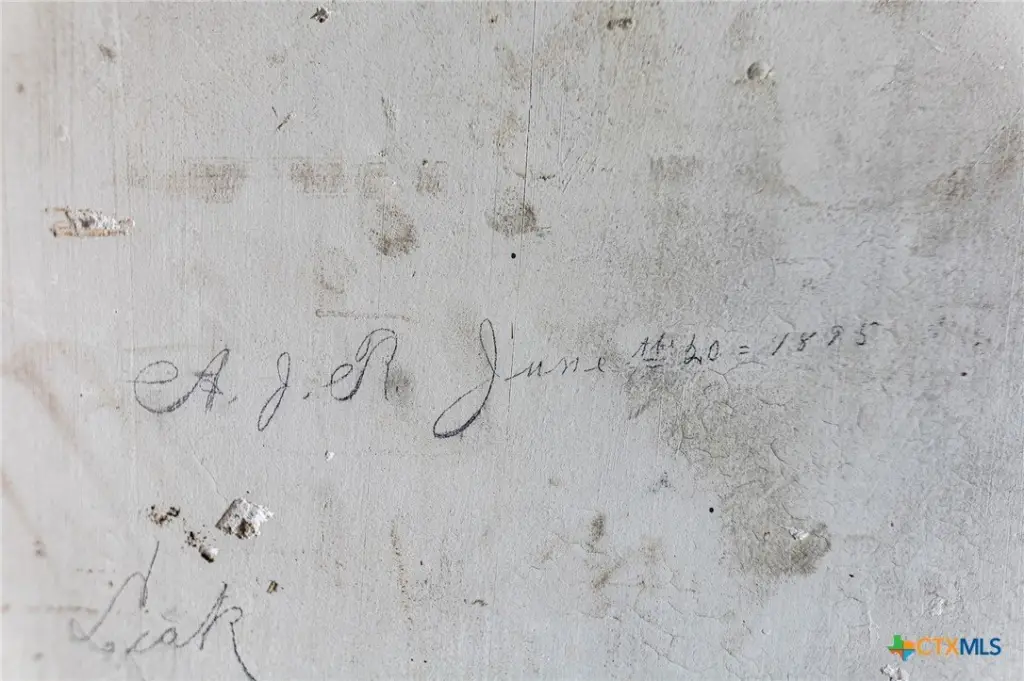 A. J. R. June th 20 = 1895
Leak
CTXMLS